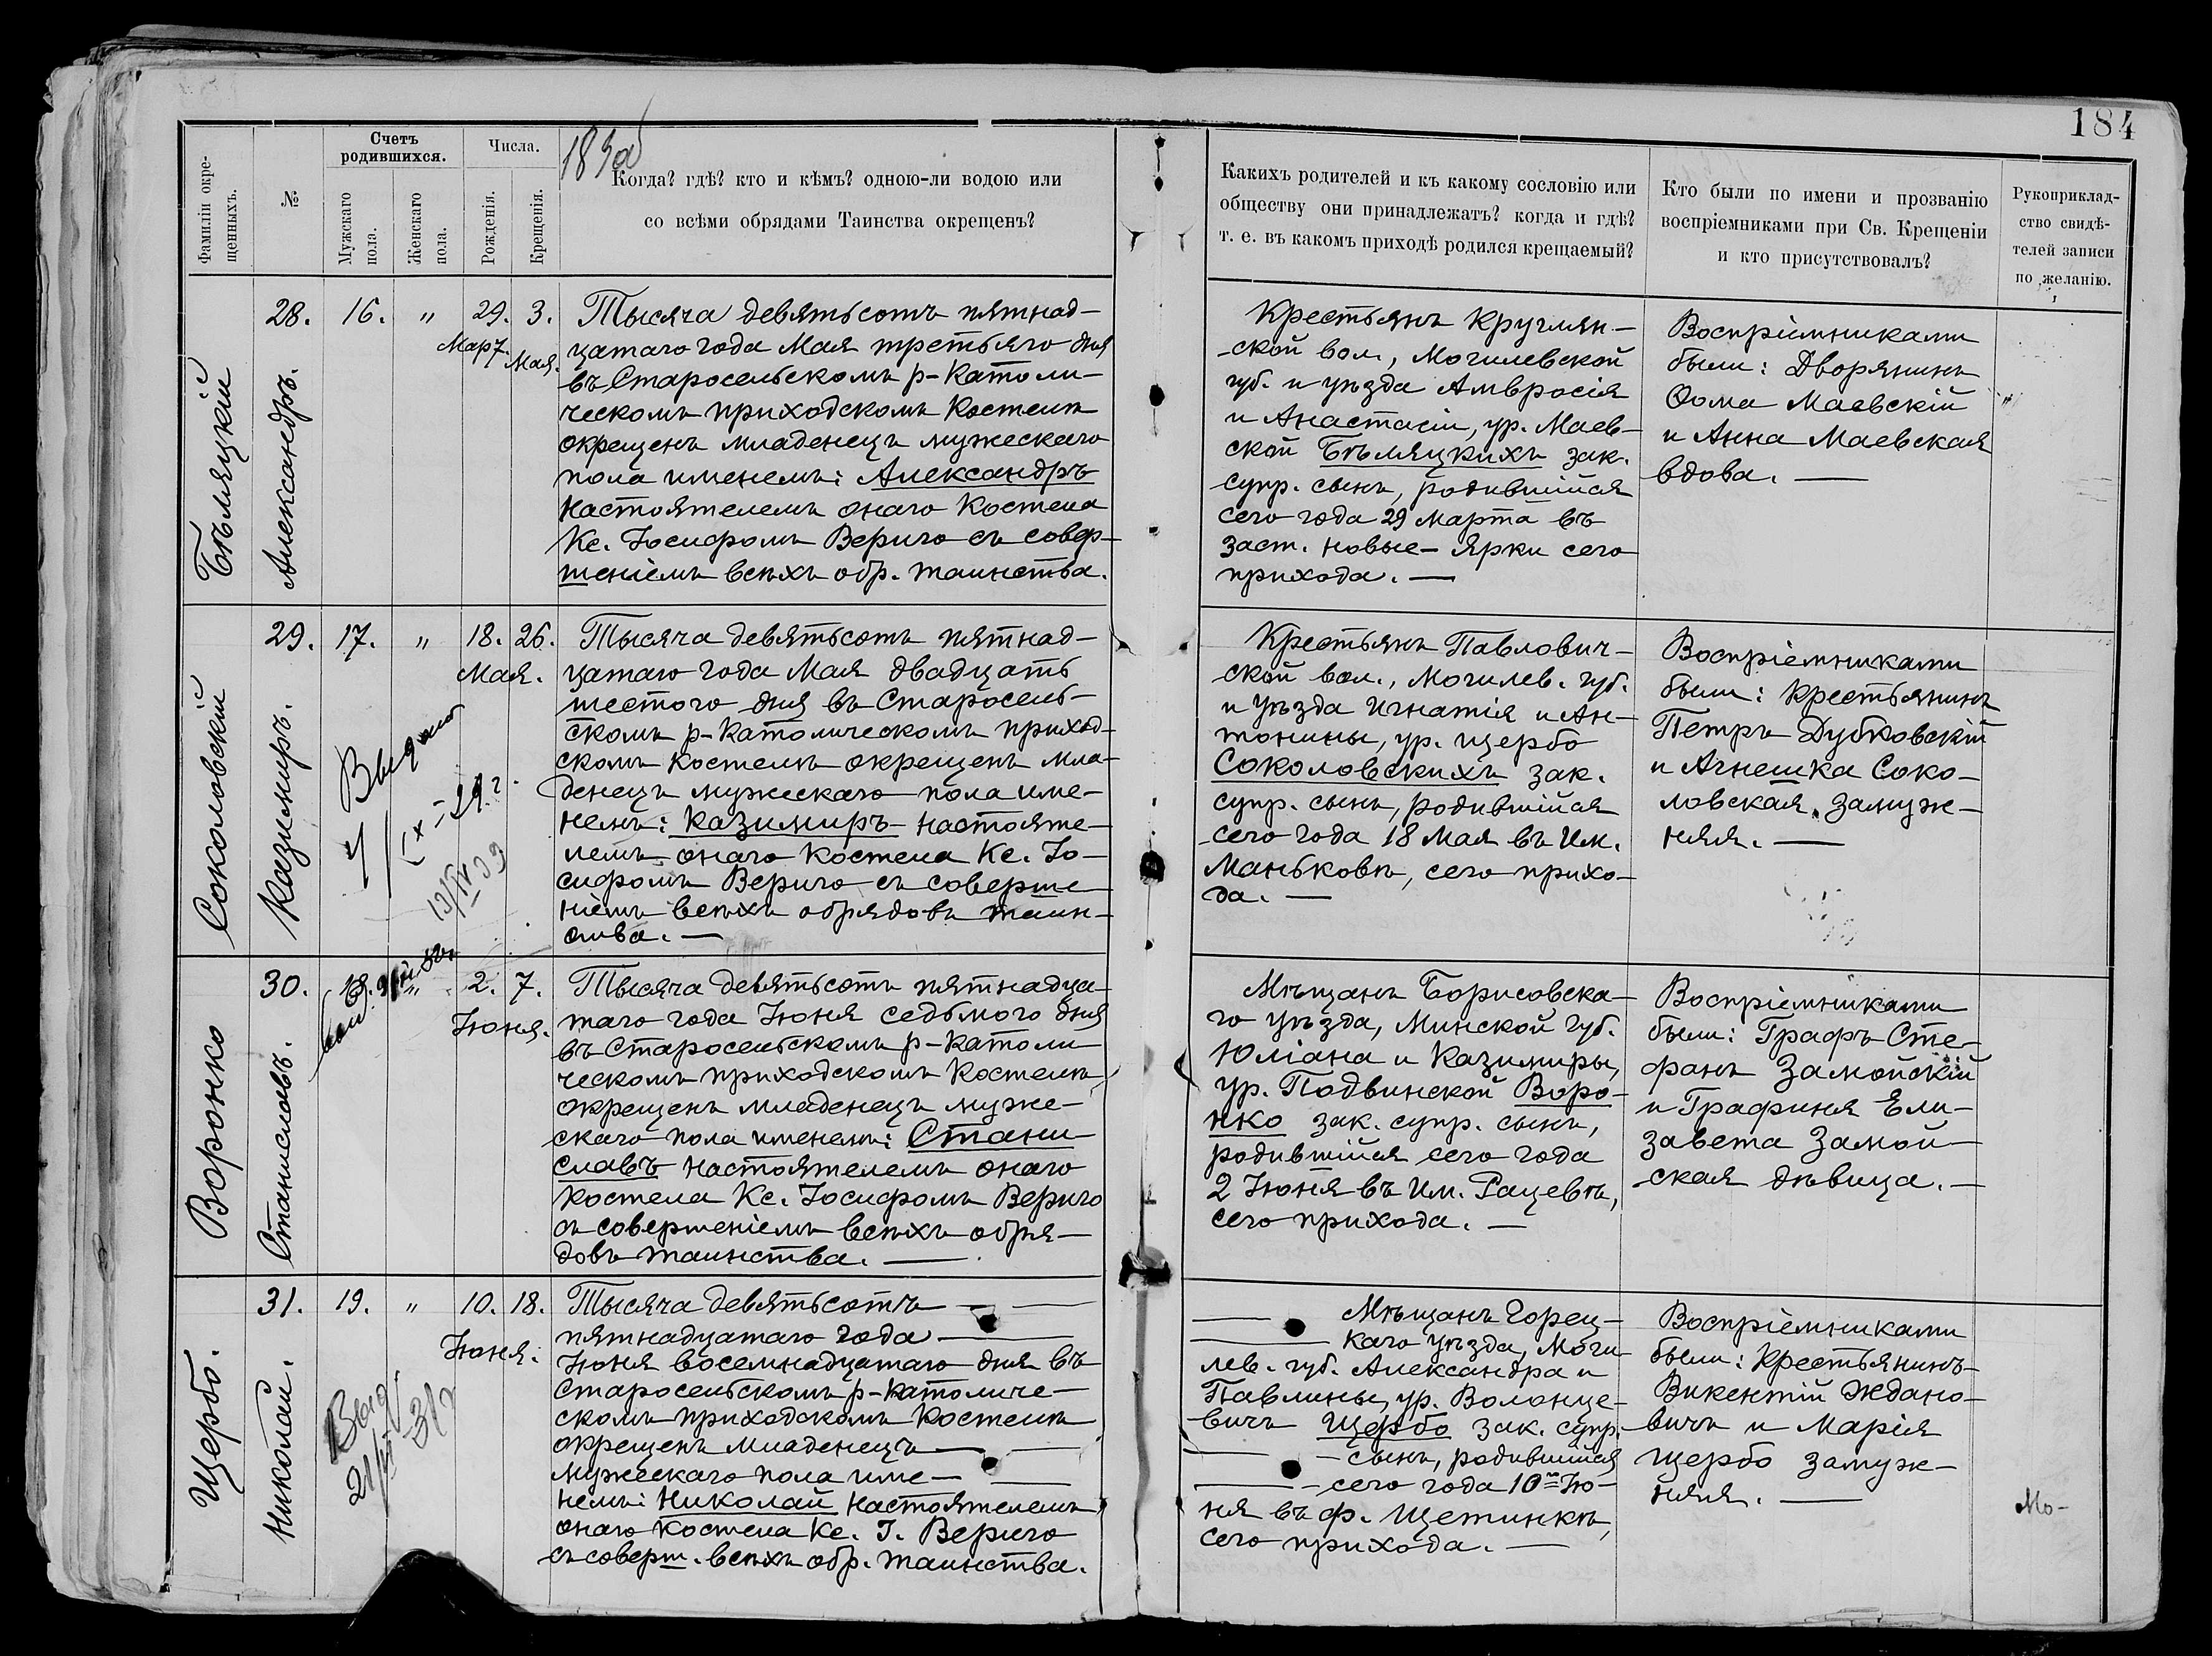 184
183об
Фамиліи окре-
щенныхъ.
№
Счетъ
родившихся.
Мужскаго
пола.
Женскаго
пола.
Числа.
Рожденія.
Крещенія.
Когда? гдѣ? кто и кѣмъ? одною-ли водою или
со всѣми обрядами Таинства окрещенъ?
Какихъ родителей и къ какому сословію или
обществу они принадлежатъ? когда и гдѣ?
т. е. въ какомъ приходѣ родился крещаемый?
Кто были по имени и прозванію
воспріемниками при Св. Крещеніи
и кто присутствовалъ?
Рукоприклад-
ство свидѣ-
телей записи
по желанію.
Бѣляцкій
28.
Александръ.
16.
"
29.
Март.
3.
Мая.
Тысяча девятьсотъ пятнад-
цатаго года Мая третьяго дня
въ Старосельскомъ р-католи-
ческомъ приходскомъ костелѣ
окрещенъ младенецъ мужескаго
пола именемъ: Александръ
настоятелемъ онаго костела
Кс. Іосифомъ Верыго съ совер-
шеніемъ всѣхъ обр. таинства.
Крестьянъ Круглян-
ской вол., Могилевской
губ. и уѣзда Амвросія
и Анастасіи, ур. Маев-
ской Бѣляцкихъ зак.
супр. сынъ, родившійся
сего года 29 Марта въ
заст. Новые-Ярки сего
прихода. —
Воспріемниками
были: Дворянинъ
Ѳома Маевскій
и Анна Маевская
вдова. —
"
Соколовскій
29.
Казимиръ.
17.
"
18.
26.
Мая.
Тысяча девятьсотъ пятнад-
цатаго года Мая двадцать
шестого дня въ Старосель-
скомъ р-католическомъ приход-
скомъ костелѣ окрещенъ мла-
денецъ мужескаго пола име-
немъ: Казимиръ настояте-
лемъ онаго костела Кс. Іо-
сифомъ Верыго съ соверше-
ніемъ всѣхъ обрядовъ таин-
ства. —
Крестьянъ Павлович-
ской вол., Могилев. губ.
и уѣзда Игнатія и Ан-
тонины, ур. Щербо
Соколовскихъ зак.
супр. сынъ, родившійся
сего года 18 Мая въ им.
Маньковѣ, сего прихо-
да. —
Воспріемниками
были: крестьянинъ
Петръ Дубковскій
и Агнешка Соко-
ловская, замуж-
няя. —
Воронко
30.
Станиславъ.
18.
"
2.
7.
Іюня.
Тысяча девятьсотъ пятнадца-
таго года Іюня седьмого дня
въ Старосельскомъ р-католи
ческомъ приходскомъ костелѣ
окрещенъ младенецъ муже-
скаго пола именемъ: Стани
славъ настоятелемъ онаго
костела Кс. Іосифомъ Верыго
съ совершеніемъ всѣхъ обря-
довъ таинства. —
Мѣщанъ Борисовска-
го уѣзда, Минской губ.
Юліана и Казимиры,
ур. Подвинской Воро-
нко зак. супр. сынъ,
родившійся сего года
2 Іюня въ им. Рацевѣ,
сего прихода. —
Воспріемниками
были: Графъ Сте-
фанъ Замойскій
и Графиня Ели-
завета Замой-
ская дѣвица. —
Щербо.
31.
Николай.
19.
"
10.
18.
Іюня.
Тысяча девятьсотъ —
пятнадцатаго года —
Іюня восемнадцатаго дня въ
Старосельскомъ р-католиче-
скомъ приходскомъ костелѣ
окрещенъ младенецъ —
мужескаго пола име-
немъ: Николай настоятелемъ
онаго костела Кс. І. Верыго
съ соверш. всѣхъ обр. таинства.
Мѣщанъ Горец-
каго уѣзда, Моги-
лев. губ. Александра и
Павлины, ур. Волонце-
вичъ Щербо зак. супр.
— сынъ, родившійся
— сего года 10го Ію-
ня въ ф. Щетинкѣ,
сего прихода. —
Воспріемниками
были: Крестьянинъ
Викентій Ждано-
вичъ и Марія
Щербо замуж-
няя. —
Мо-